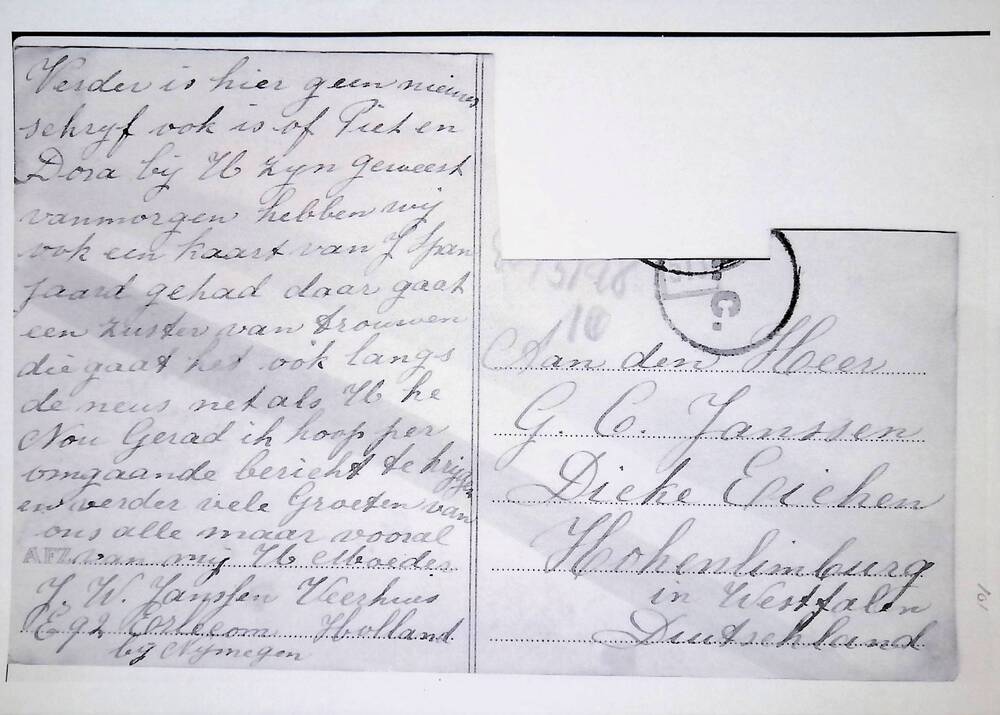 Verder is hier geen nieuws
schryf ook is of Piet en
Dora bij U zyn geweest
vanmorgen hebben wij
ook een kaart van J Span
jaard gehad daar gaat
een zuster van trouwen
die gaat het ook langs
de neus net als U he
Nou Gerad ik hoop per
omgaande bericht te krijgen
en verder vele Groeten van
ons alle maar vooral
AFZ. van mij U Moeder
J. W. Janssen Veerhuis
E92 Erlecom Holland
by Nymegen
C.
10
Aan den Heer
G. C. Janssen
Dicke Eichen
Hohenlimburg
in Westfalen
Duitschland
101